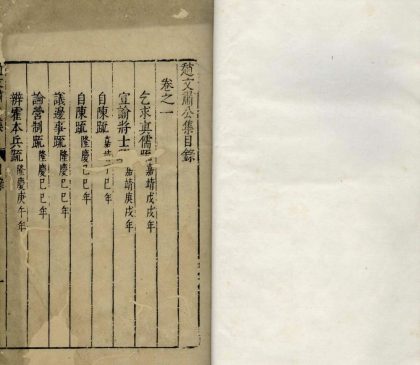 趙文肅公集目錄
卷之一
乞求真儒疏 嘉靖戊戌年
宣諭將士 嘉靖庚戌年
自陳疏 嘉靖 巳年
自陳疏 隆慶己巳年
議邊事疏 隆慶己巳年
論營制疏 隆慶己巳年
辨霍本兵疏 隆慶庚午年